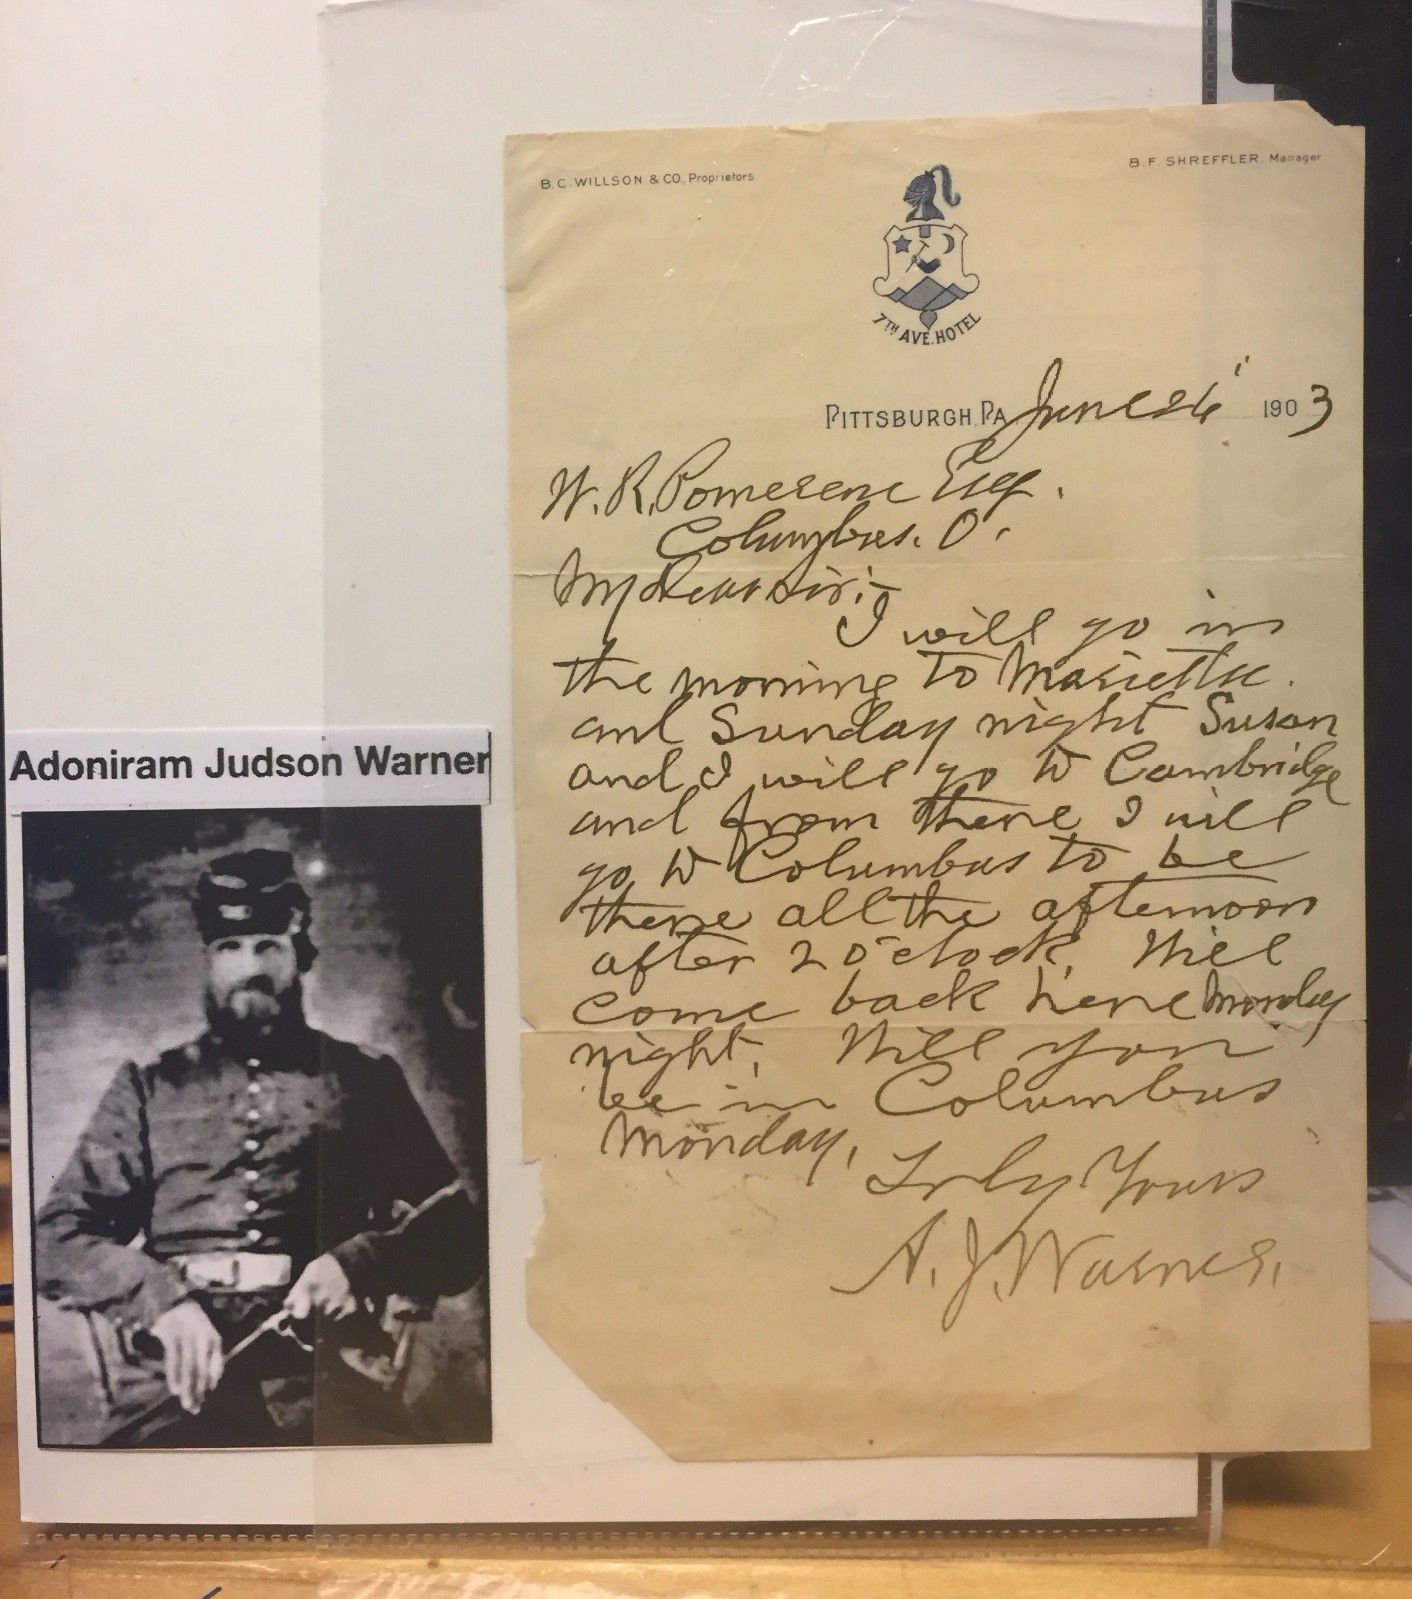 B. C. WILLSON & CO., Proprietors.
B. F. SHREFFLER, Manager
7TH AVE. HOTEL
PITTSBURGH, PA June 1903
W. R. Pomerene Esq.
Columbus. O.
My Dear Sir:-
I will go in
the morning to Marietta.
and Sunday night Susan
and I will go to Cambridge
and from there I will
go to Columbus to be
there all the afternoon
after 2 o'clock. Will
come back here Monday
night. Will you
be in Columbus
Monday,
Truly Yours
A. J. Warner.
Adoniram Judson Warner